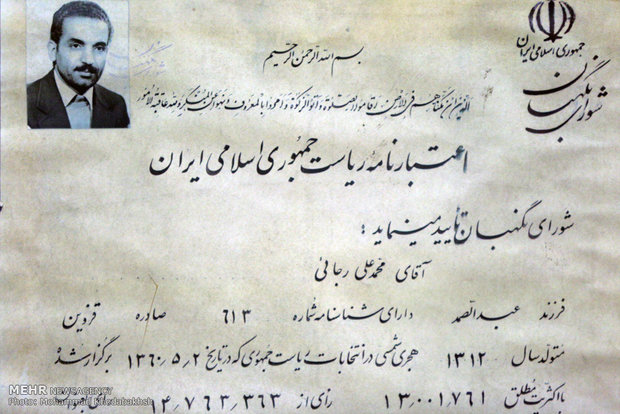 جمهوری اسلامی ایران
شورای نگهبان
بسم الله الرحمن الرحیم
الذین ان مکناهم فی الارض اقاموا الصلوة و اتوا الزکوة و امروا بالمعروف و نهوا عن المنکر و لله عاقبة الامور
اعتبارنامه ریاست جمهوری اسلامی ایران
شورای نگهبان تایید مینماید :
آقای محمد علی رجائی
فرزند عبدالصمد دارای شناسنامه شماره ۶۱۳ صادره قزوین
متولد سال ۱۳۱۲ هجری شمسی در انتخابات ریاست جمهوری که در تاریخ ۱۳۶۰٫۵٫۲ برگزار شد
با اکثریت مطلق ۱۳٫۰۰۱٫۷۶۱ رأی از ۱۴٫۷۶۳٫۳۶۳
MEHR NEWSAGENCY
Photo: Mohammad Khodabakhsh